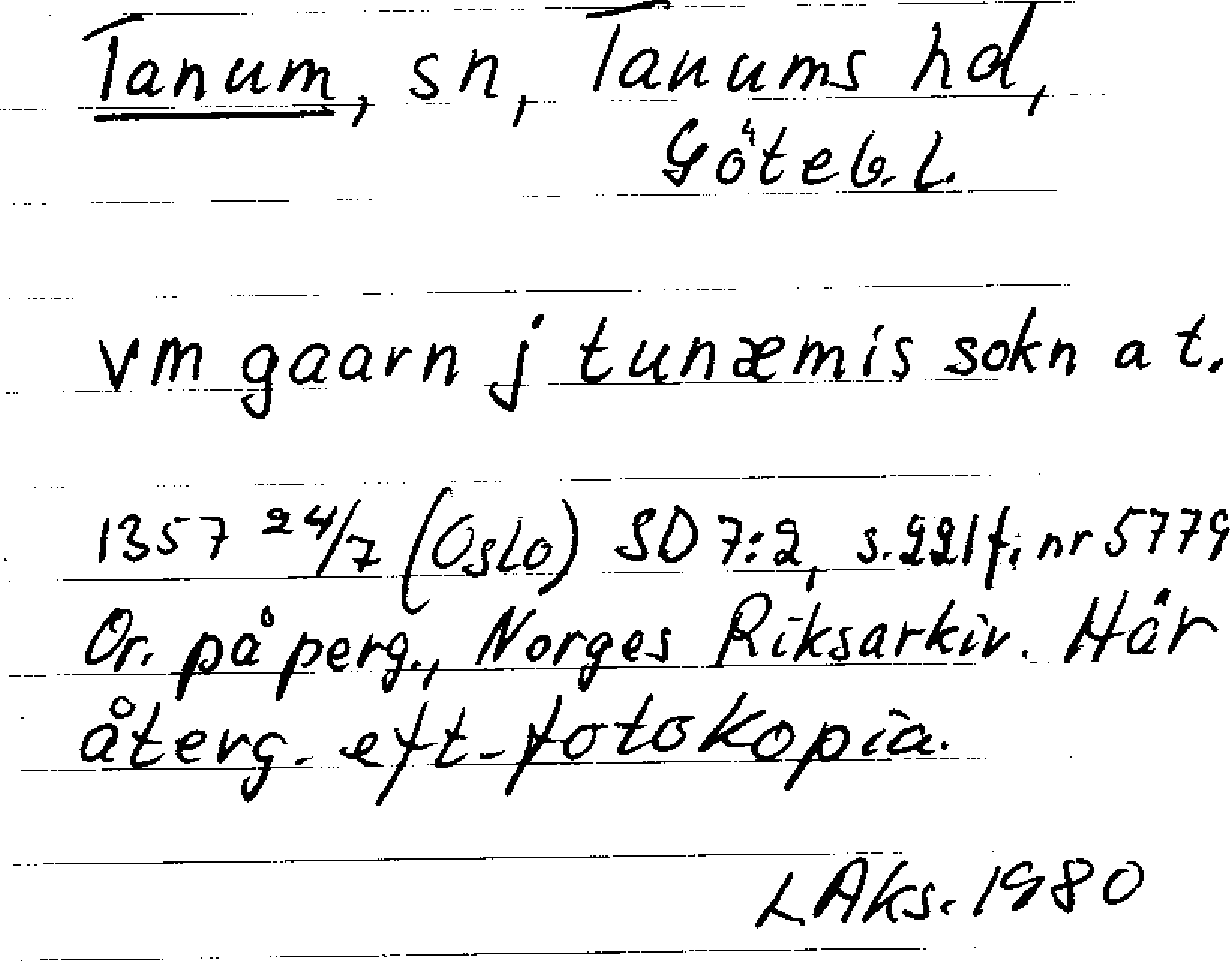 Tanum, sn, Tanums hd,
Göteb. l.
vm gaarn j tunæmis sokn a t.
1357 24/7 (Oslo) SD 7:2, s. 221 f, nr 5779
Or. på perg., Norges Riksarkiv. Här
återg. eft. fotokopia.
L Aks. 1980